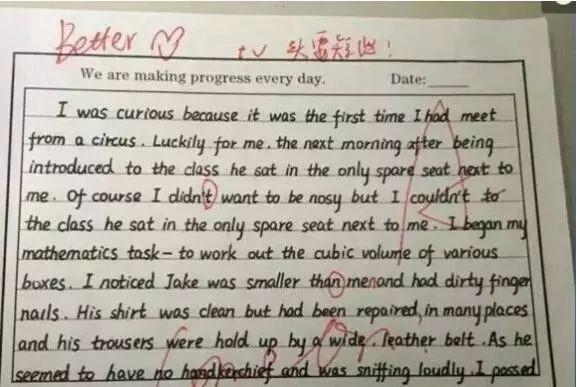 Better
t v 头要短出!
We are making progress every day. Date:
I was curious because it was the first time I had meet
from a circus. Luckily for me. the next morning after being
introduced to the class he sat in the only spare seat next to
me. Of course I didn't want to be nosy but I couldn't to
the class he sat in the only spare seat next to me. I began my
mathematics task - to work out the cubic volume of various
boxes. I noticed Jake was smaller than menand had dirty finger
nails. His shirt was clean but had been repaired, in many places
and his trousers were hold up by a wide, leather belt. As he
seemed to have no handkerchief and was sniffing loudly. I passed